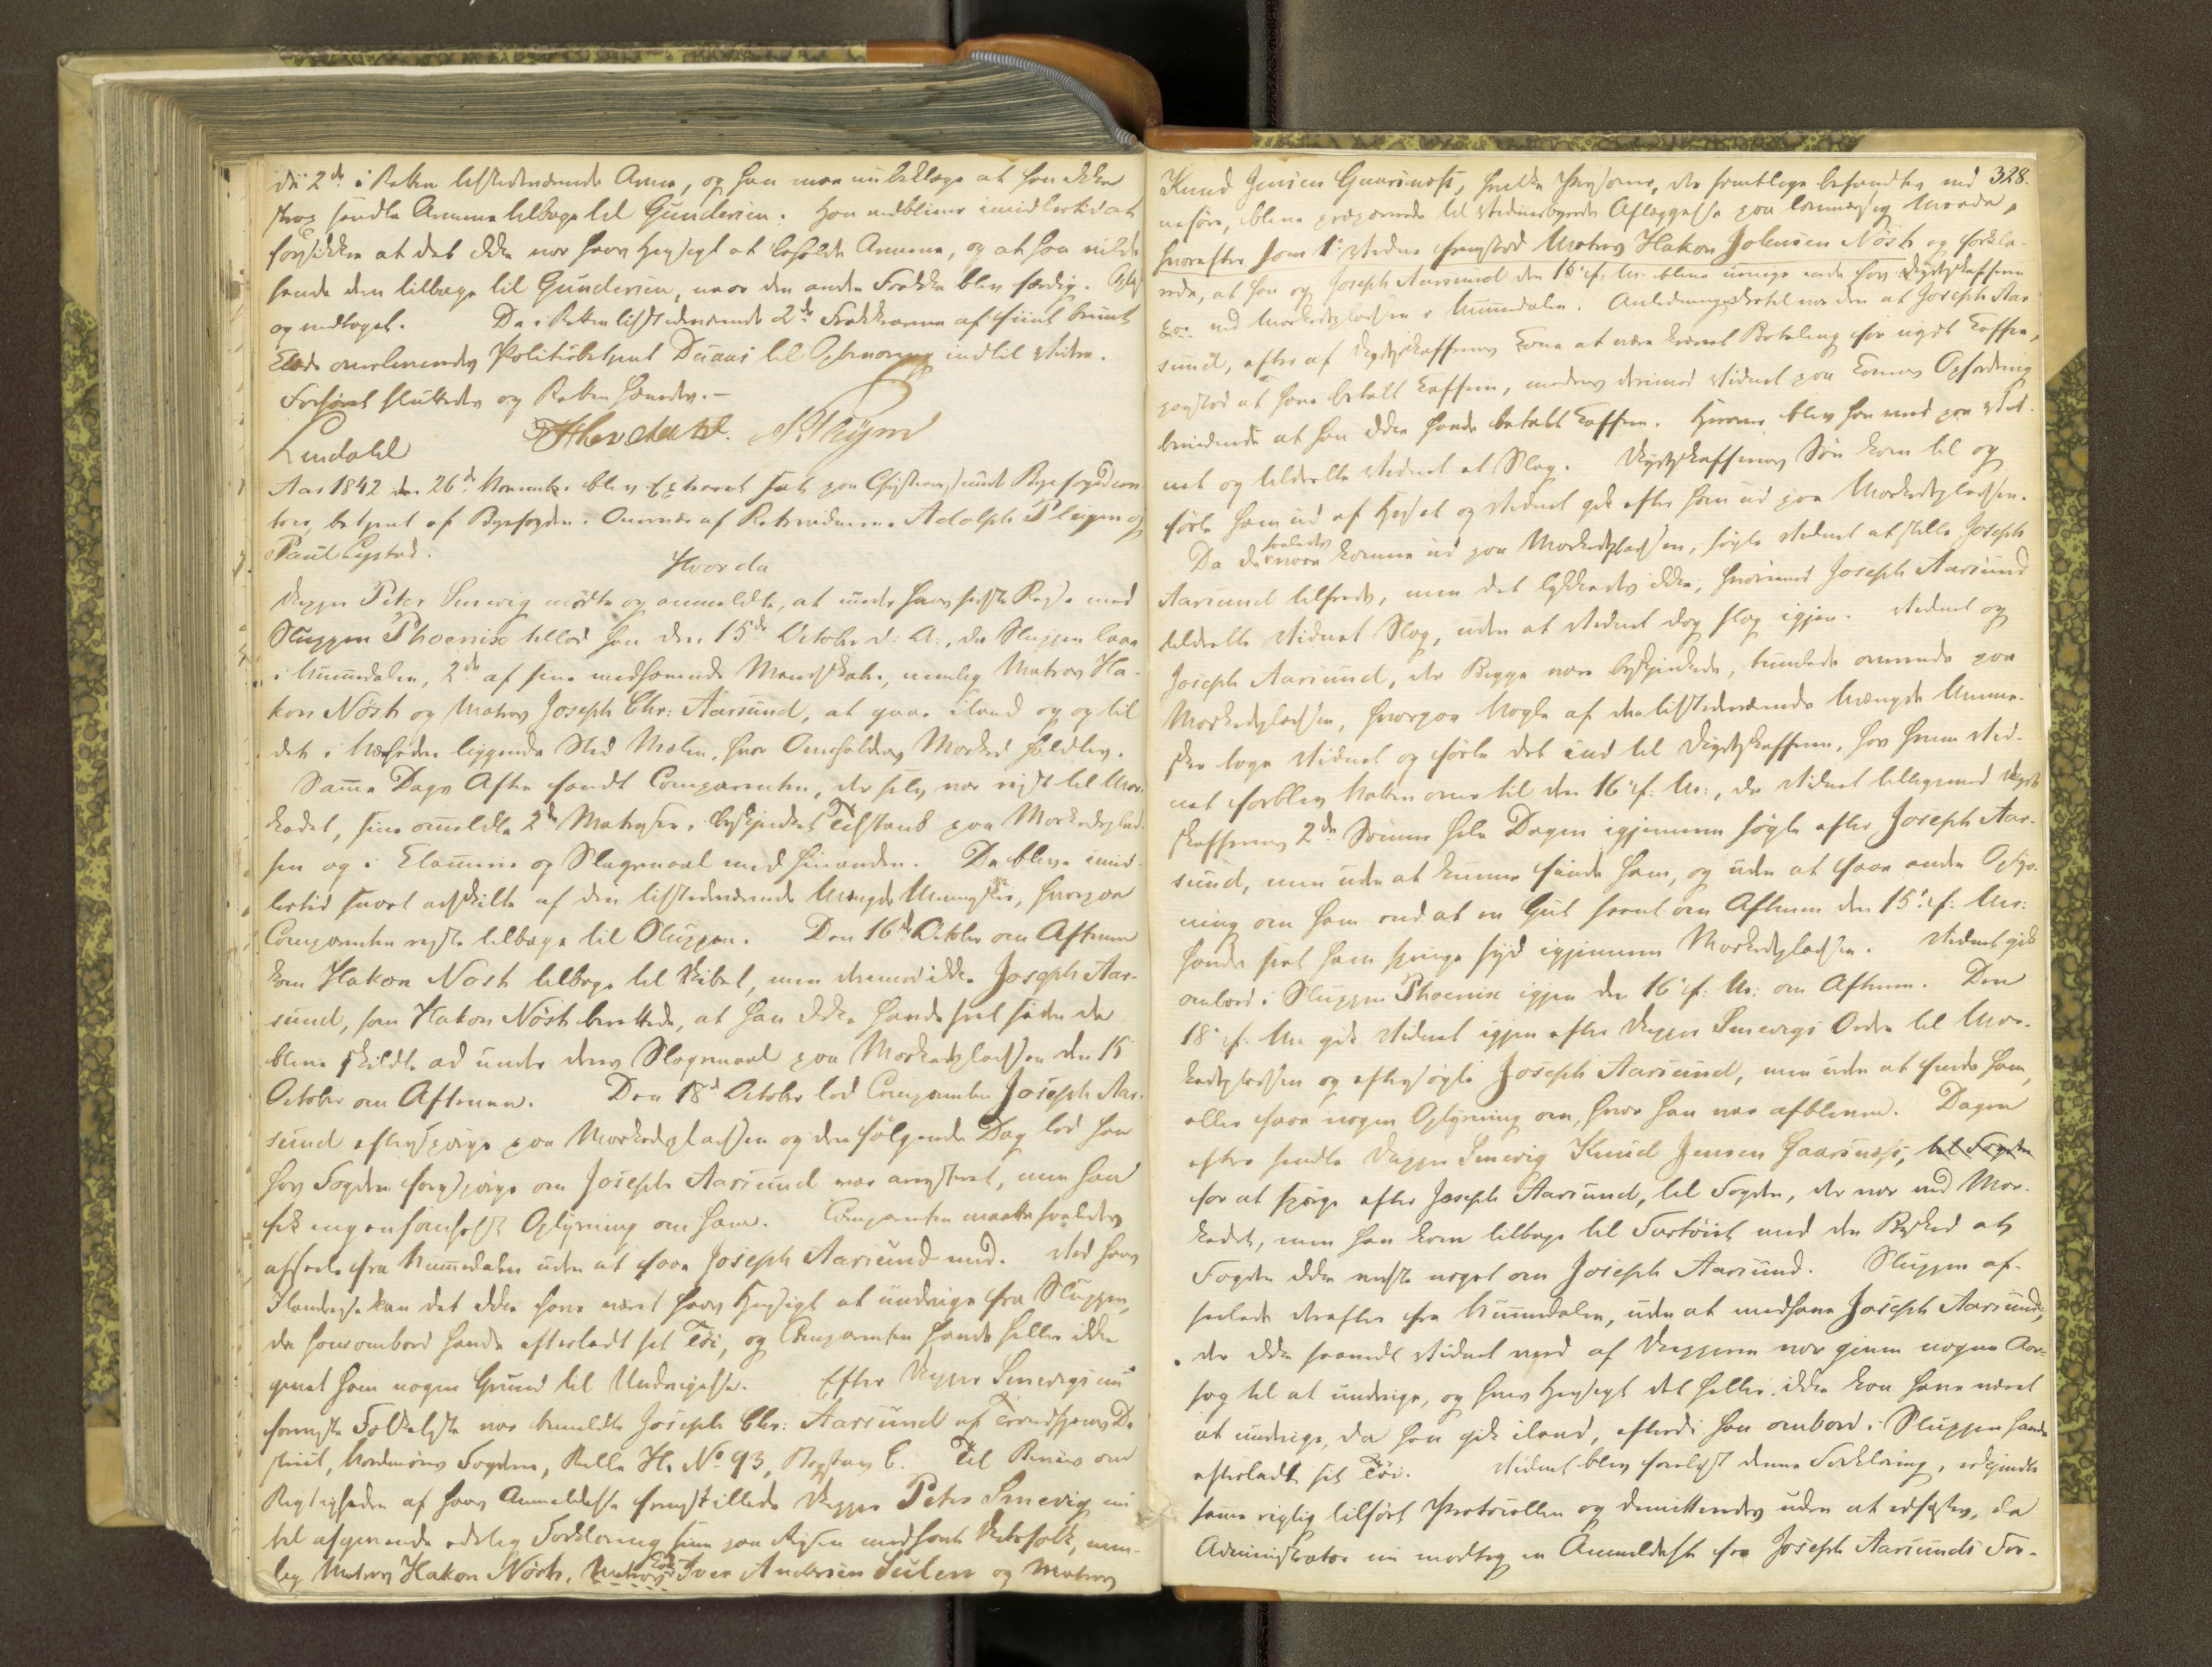 de 2de i Retten tilstedeværende Arme, og han maa nu beklage at han ikke
strax sendte Armene tilbage til Gundersen. Han vedbliver imidlertid at
forsikkre at det ikke var hans Hensigt at beholde Armene, og at han vilde
sende dem tilbage til Gundersen, naar den anden Frakke blev færdig. Oplæst
og vedtaget. De i Retten tilstedeværende 2de Frakkearme af fiint bruunt
Klæde overleveredes Politiebetjent Duaas til Opbevaring indtil videre.
Forhøret sluttedes og Retten hævedes.-
Lindahl
Aar 1842 den 26de Novembr. blev Extraret sat paa Christianssunds Byefogedcon-
toir, betjent af Byefogden. Overvær af Retsvidnerne Adolph Pleym og
Paul Lystad.
Hvorda
Skipper Peter Snevig mødte og anmeldte, at under hans sidste Reise med
Sluppen Phoenix tillod han den 15de October d: A:, da Sluppen laae
i Nummedalen, 2de af sine medhavende Mandskaber, nemlig Matros Ha-
kon Nøst og Matros Joseph Chr: Aarsund, at gaae iland og op til
det i Nærheden liggende Sted hvor Marked holdtes.
Samme Dags Aften fandt Comparenten, der selv var reist til Mar-
kedet, sine ommeldte 2de Matroser i beskjenket Tilstand paa Markedsplad-
sen og i Klammeri og Slagsmaal med hinanden. De bleve imid-
lertid snart adskilte af den tilstedeværende Mængde Mennesker, hvorpaa
Comparenten reiste tilbage til Sluppen. Den 16de October om Aftenen
kom Hakon Nøst tilbage til Skibet, men derimod ikke Joseph Aar-
sund, som Hakon Nøst berettede, at han ikke havde seet siden de
bleve skildte ad under deres Slagsmaal paa Markedspladsen den 15
October om Aftenen. Den 18de October lod Comparenten Joseph Aar-
sund efterspørge paa Markedspladsen og den følgende Dag lod han
hos Fogden forespørge om Joseph Aarsund var arresteret, men han
fik ingensomhelst Oplysning om ham. Comparenten maatte saaledes
afseile fra Nummedalen uden at faae Joseph Aarsund med. Ved hans
Ilandreise kan det ikke have været hans Hensigt at undvige fra Sluppen,
da han ombord havde efterladt sit Tøi, og Comparenten havde heller ikke
givet ham nogen Grund til Undvigelse. Efter Skipper Snevigs nu
foreviste Folkeliste var bemeldte Joseph Chr: Aarsund af Trondhjems Di-
strict, Nordmøers Fogderi, Rulle H. No 93, Bogstav C. Til Beviis om
Rigtigheden af hans Anmeldelse fremstillede Skipper Peter Snevig nu
til afgivende edelig Forklaring sine paa Reisen medhavte Skibsfolk, nem-
lig Matros Hakon Nøst, Matros Kok Iver Andersen Sulen og Matros
328.
Knud Jensen Gaarsnæss, hvilke Personer, der samtlige befandtes ved
nefore, bleve præparerede til Vidnesbyrds Aflæggelse paa lovmæssig Maade,
hvorefter som 1ste Vidne fremstod Matros Hakon Johnsen Nøst og forkla-
rede, at han og Joseph Aarsund den 15 f: M: bleve uenige inde hos Skydsskafferen
ved Markedspladsen i Nummedalen. Anledningen dertil var den at Joseph Aar-
sund, efter af Skydsskafferens Kone at være krævet Betaling for nydt Kaffee,
paastod at have betalt Kaffeen, medens derimod Vidnet paa Konens Opfordring
bevidnede at han ikke havde betalt Kaffeen. Herover blev han vred paa Vid-
net og tildeelte Vidnet et Slag. Skydsskafferens Søn kom til og
førte ham ud af Huset og Vidnet gik efter ham ud paa Markedspladsen.
Da de saaledes vare komne ud paa Markedspladsen, søgte Vidnet at stille Joseph
Aarsund tilfreds, men det lykkedes ikke, hvorimod Joseph Aarsund
tildeelte Vidnet Slag, uden at Vidnet dog slog igjen. Vidnet og
Joseph Aarsund, der Begge vare beskjænkede, tumlede omrende paa
Markedspladsen, hvorpaa Nogle af den tilstedeværende Mængde Menne-
sker toge Vidnet og førte det ind til Skydsskafferen, hos hvem Vid-
net forblev Natten over til den 16 f: M:, da Vidnet tilligemed Skyds-
skafferens 2de Sønner hele Dagen igjennem søgte efter Joseph Aar-
sund, men uden at kunne finde ham, og uden at faae anden Oplys-
ning om ham end at en Gut havde om Aftenen den 15 f: M:
havde seet ham springe syd igjennem Markedspladsen. Vidnet gik
ombord i Sluppen Phoenix igjen den 16 f: M: om Aftenen. Den
18 f: M: gik Vidnet igjen efter Skipper Snevigs Ordre til Mar-
kedspladsen og eftersøgte Joseph Aarsund, men uden at finde ham,
eller faae nogen Oplysning om, hvor han var afbleven. Dagen
efter sendte Skipper Snevig Knud Jensen Gaarsnæss, til Fogden
for at spørge efter Joseph Aarsund, til Fogden, der var ved Mar-
kedet, men han kom tilbage til Fartøiet med den Besked at
Fogden ikke vidste noget om Joseph Aarsund. Sluppen af-
seilede derefter fra Nummedalen, uden at medhave Joseph Aarsund,
der ikke saavidt Vidnet veed af Skipperen var given nogen Aar-
sag til at undvige, og hvis Hensigt det heller ikke kan have været
at undvige, da han gik iland, efterdi han ombord i Sluppen havde
efterladt sit Tøi. Vidnet blev forelæst denne Forklaring, vedkjendte
samme rigtig tilført Protocollen og demitteredes uden at edfæstes, da
Administrator nu modtog en Anmeldelse fra Joseph Aarsunds For-